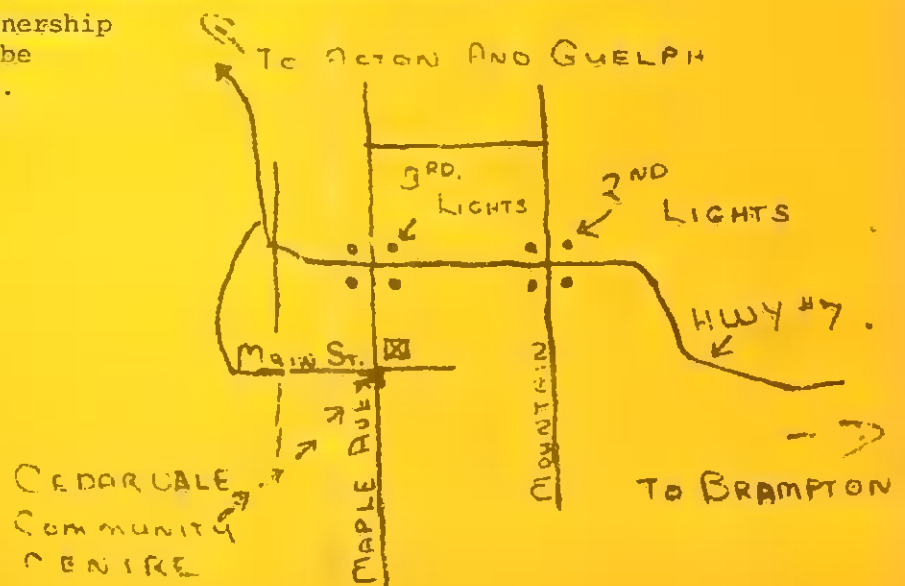 nership
be
.
To ACTON AND GUELPH
3RD.
LIGHTS
2ND
LIGHTS
HWY #7.
MAIN ST.
MAPLE AVE
MOUNTAIN
TO BRAMPTON
CEDARVALE
COMMUNITY
CENTRE